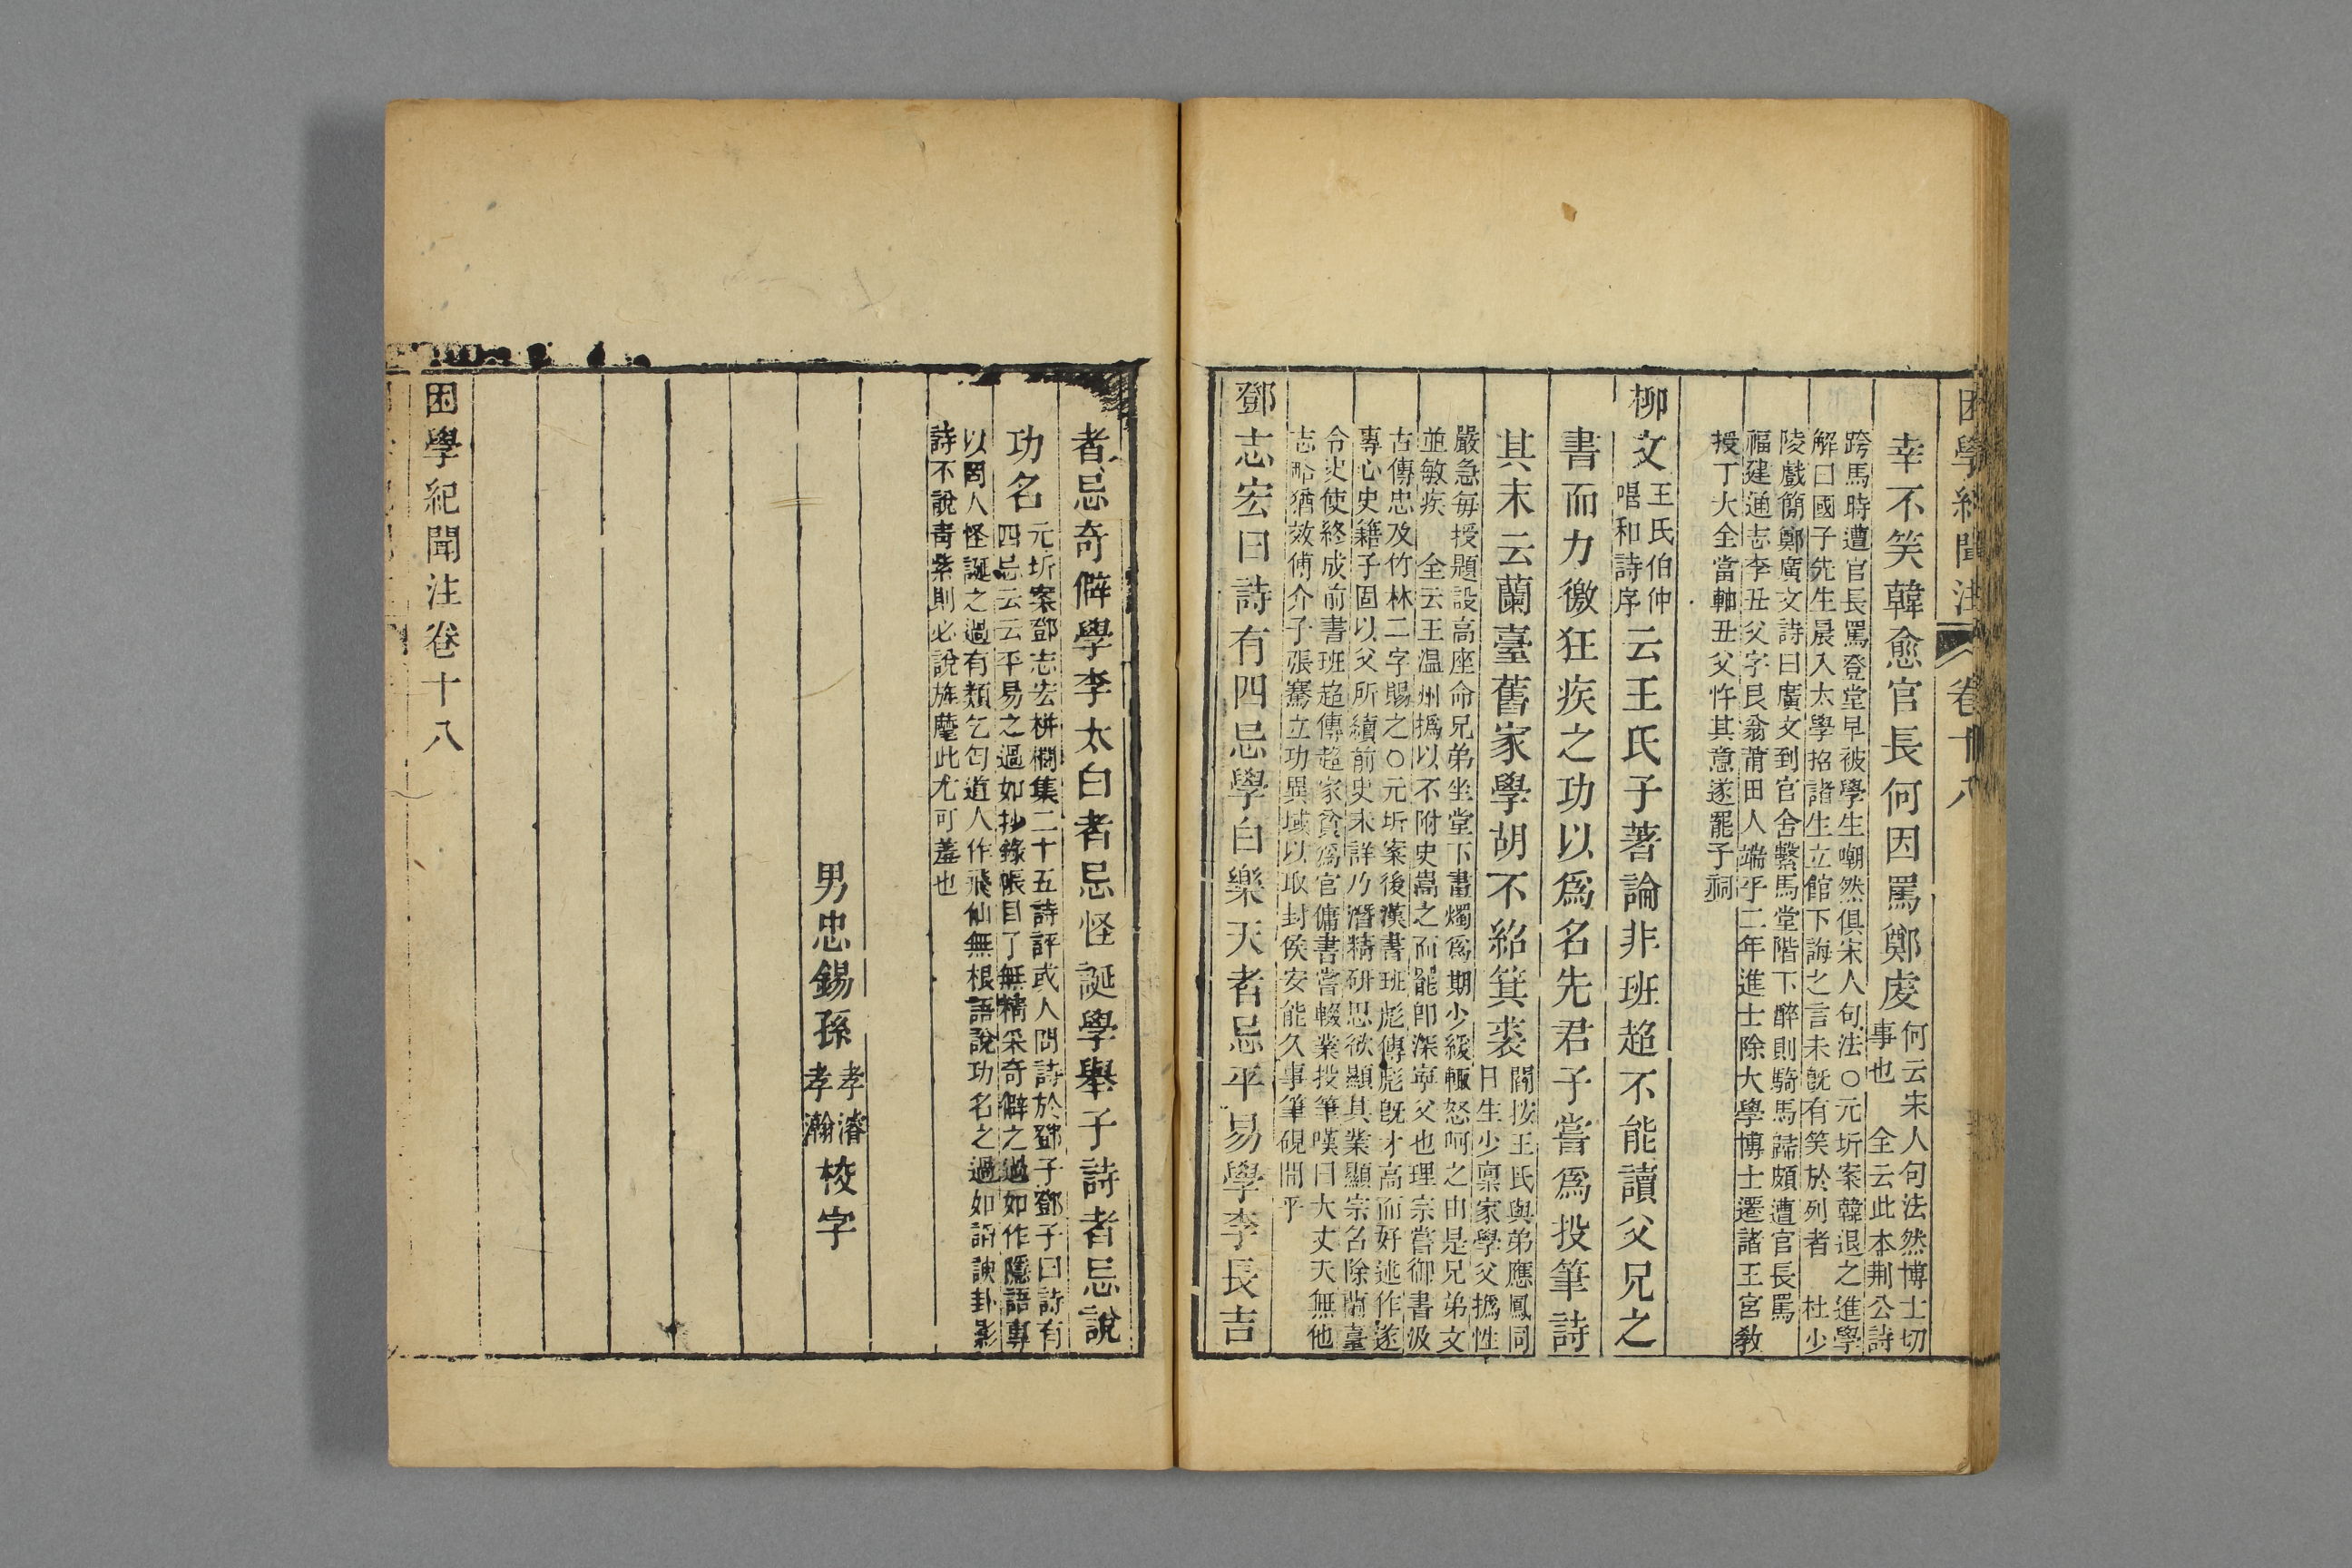 困學紀聞注 卷十八
幸不笑韓愈官長何因罵鄭虔
何云宋人句法然博士切
事也 全云此本荆公詩
跨馬時遭官長罵登堂早被學生嘲然俱宋人句法○元圻案韓退之進學
解曰國子先生晨入太學招諸生立館下誨之言未旣有笑於列者 杜少
陵戲簡鄭廣文詩曰廣文到官舍繫馬堂階下醉則騎馬歸頗遭官長罵
福建通志李丑父字艮翁莆田人端平二年進士除大學博士遷諸王宮敎
授丁大全當軸丑父忤其意遂罷子祠
柳文
王氏伯仲
唱和詩序
云王氏子著論非班超不能讀父兄之
書而力徼狂疾之功以爲名先君子嘗爲投筆詩
其末云蘭臺舊家學胡不紹箕裘
閻按王氏與弟應鳳同
日生少稟家學父撝性
嚴急每授題設高座命兄弟坐堂下畫燭爲期少緩輒怒呵之由是兄弟文
並敏疾 全云王温州撝以不附史嵩之而罷卽深寧父也理宗嘗御書汲
古傳忠及竹林二字賜之○元圻案後漢書班彪傳彪旣才高而好述作遂
專心史籍子固以父所續前史未詳乃潛精研思欲顯其業顯宗召除蘭臺
令史使終成前書班超傳超家貧爲官傭書嘗輟業投筆嘆曰大丈夫無他
志略猶效傅介子張騫立功異域以取封侯安能久事筆硯間乎
鄧志宏曰詩有四忌學白樂天者忌平易學李長吉
者忌奇僻學李太白者忌怪誕學舉子詩者忌說
功名
元圻案鄧志宏栟櫚集二十五詩評或人問詩於鄧子鄧子曰詩有
四忌云云平易之過如抄錄帳目了無精采奇僻之過如作隱語專
以罔人怪誕之過有類乞匄道人作飛仙無根語說功名之過如諂諛卦影
詩不說靑紫則必說旌麾此尤可羞也
男忠錫孫
孝濬
孝瀚
校字
困學紀聞注卷十八